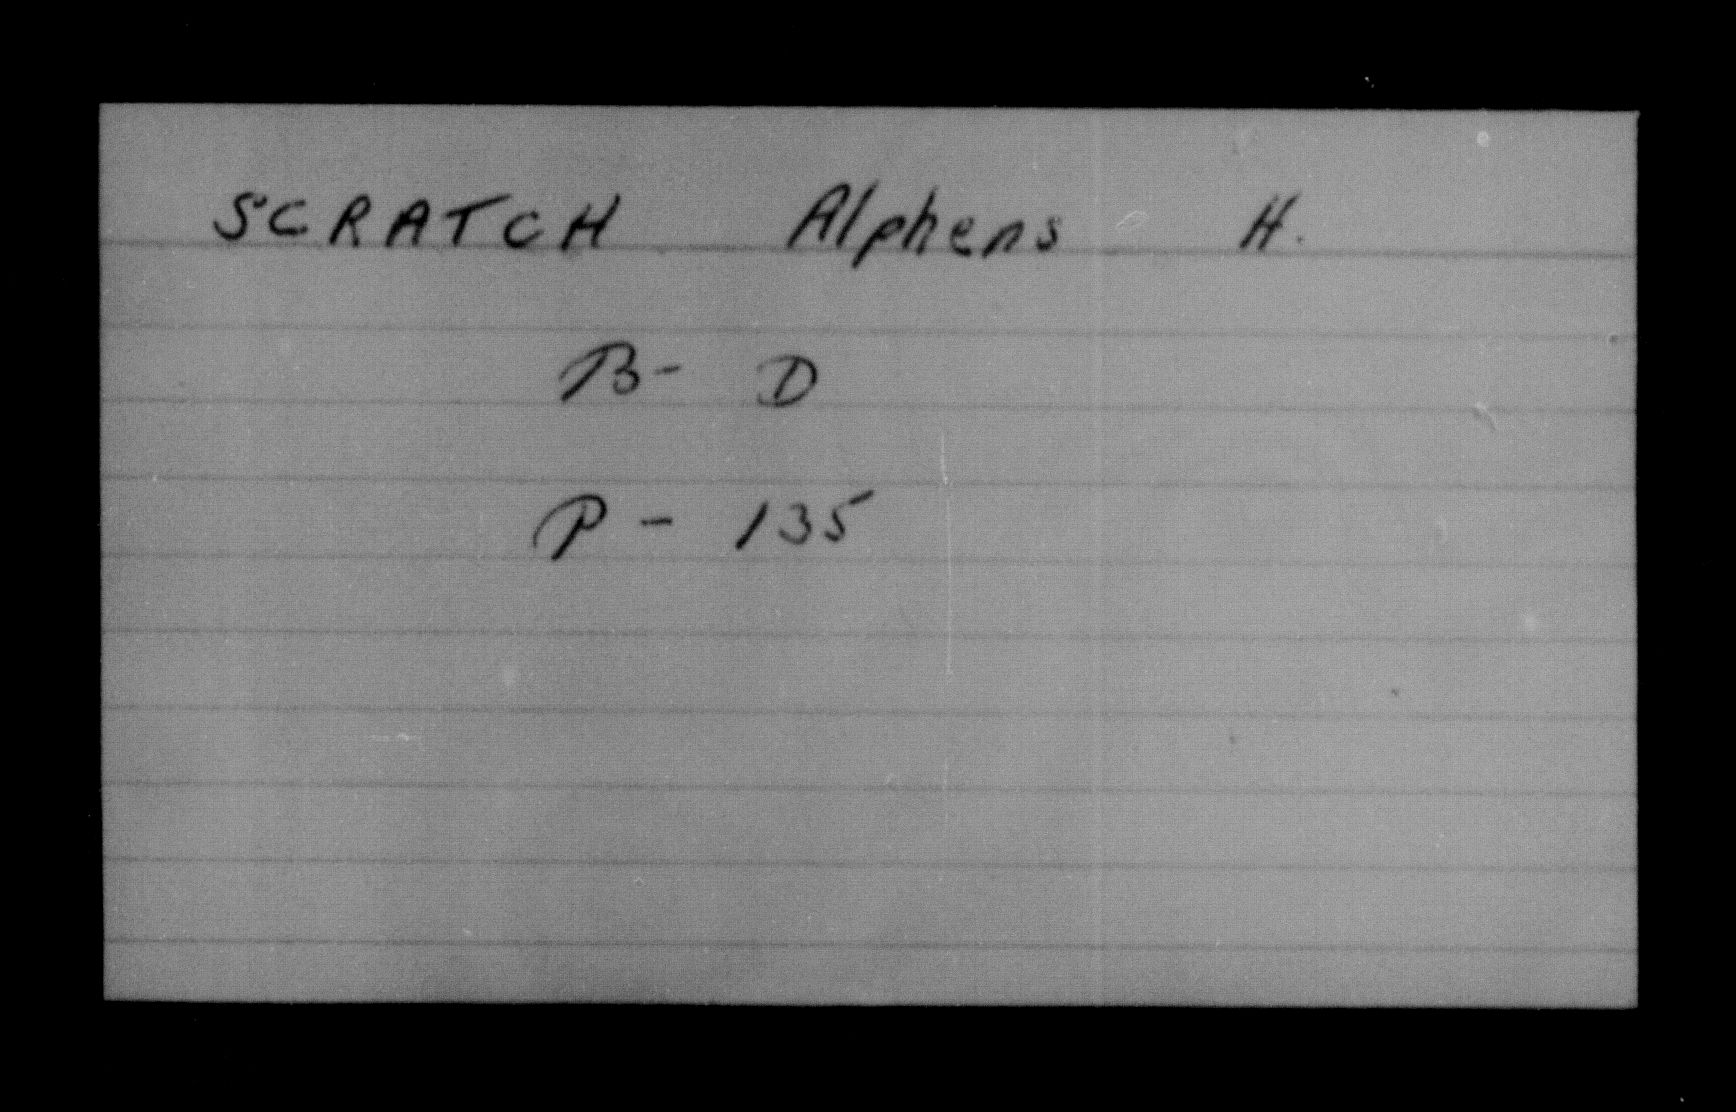 SCRATCH Alphens H.
B- D
P - 135